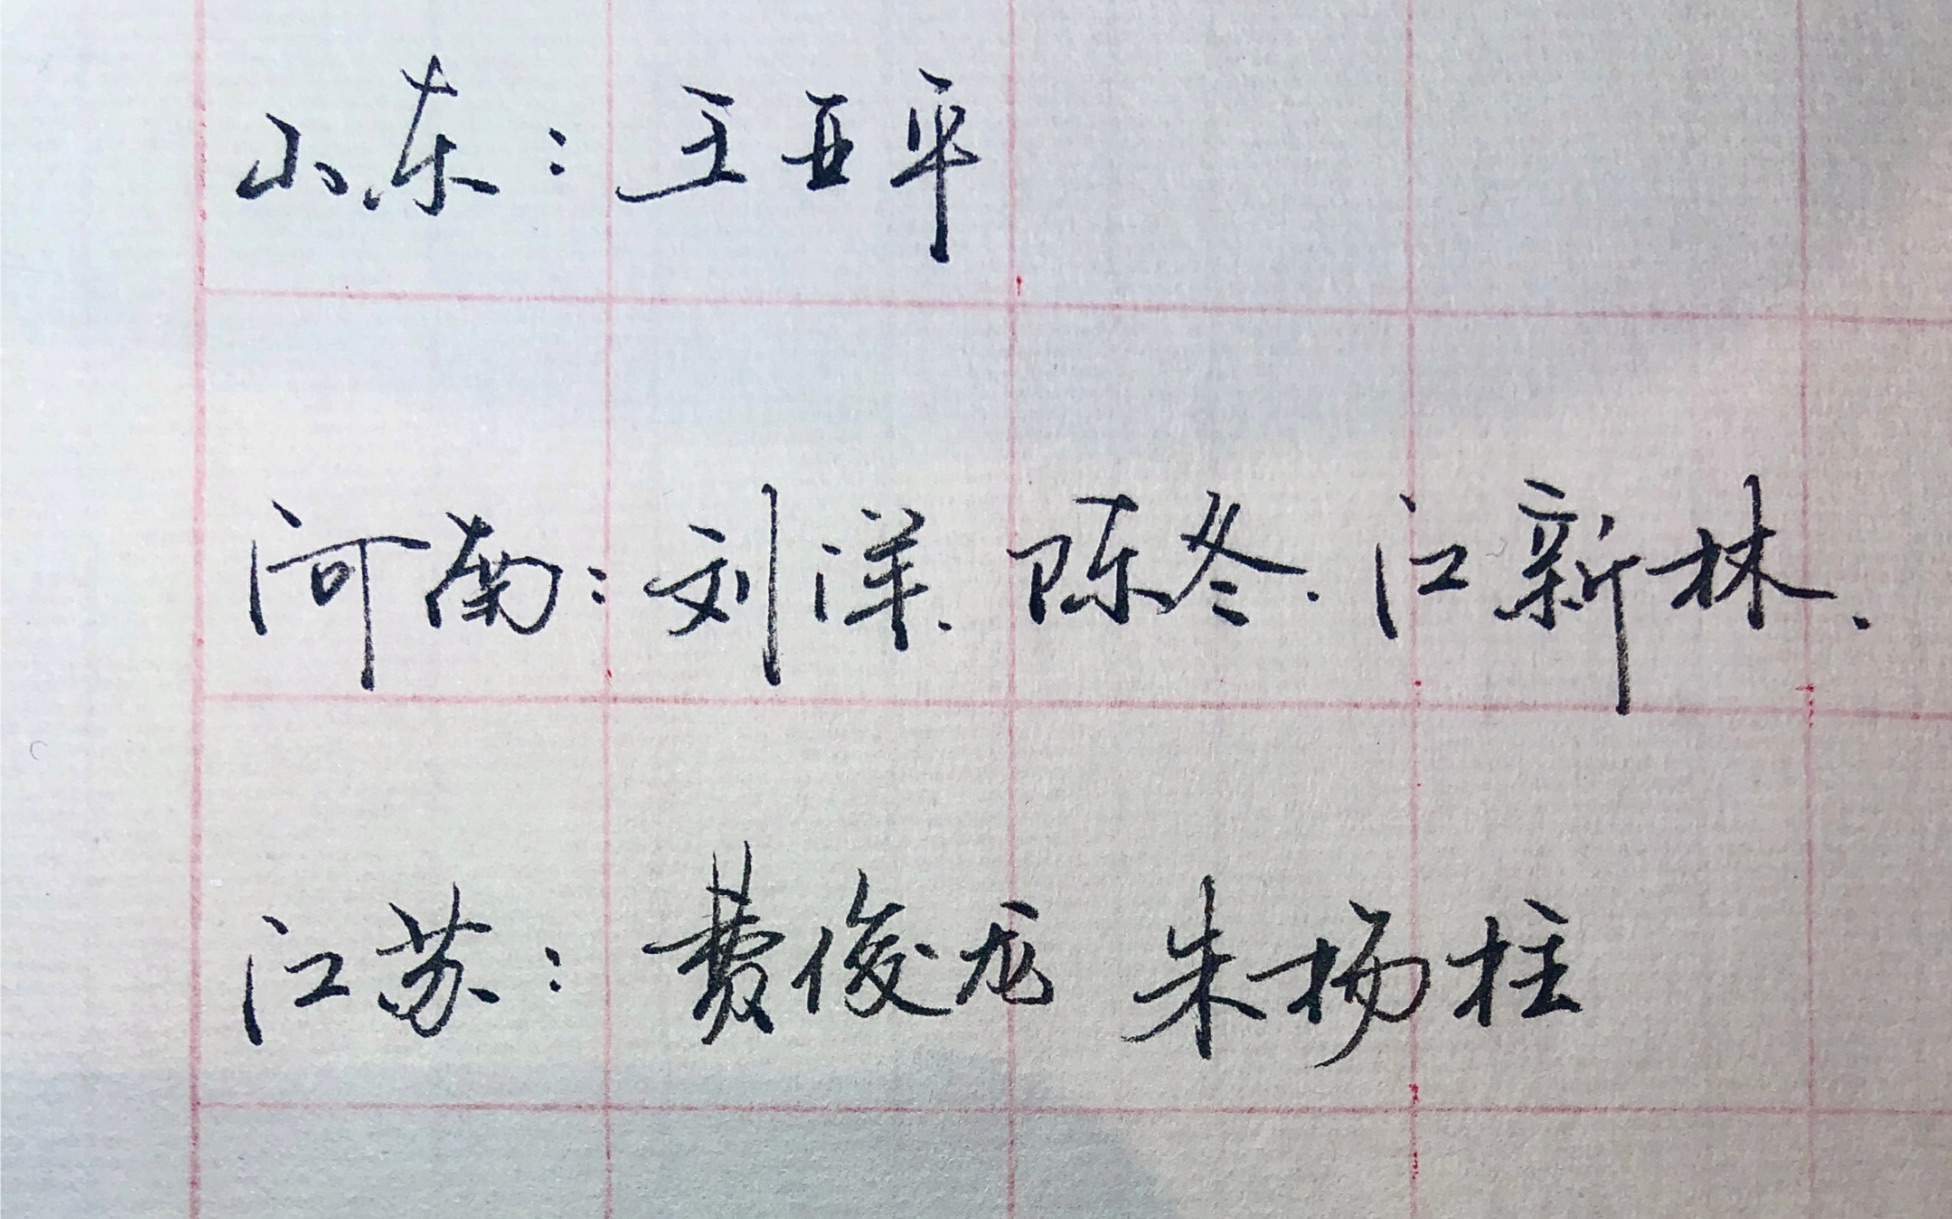 山东：王亚平
河南：刘洋、陈冬、江新林、
江苏：费俊龙 朱杨柱